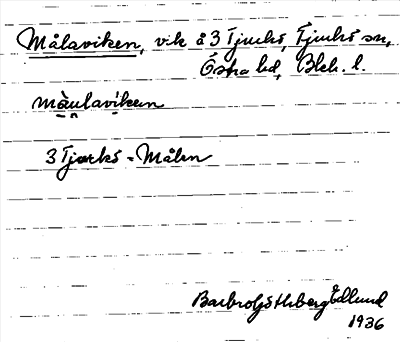 Målaviken, vik å 3 Tjurkö, Tjurkö sn,
Östra hd, Blek. l.
màulavíken
3 Tjurkö - Målen
Barbro Edlund
1936